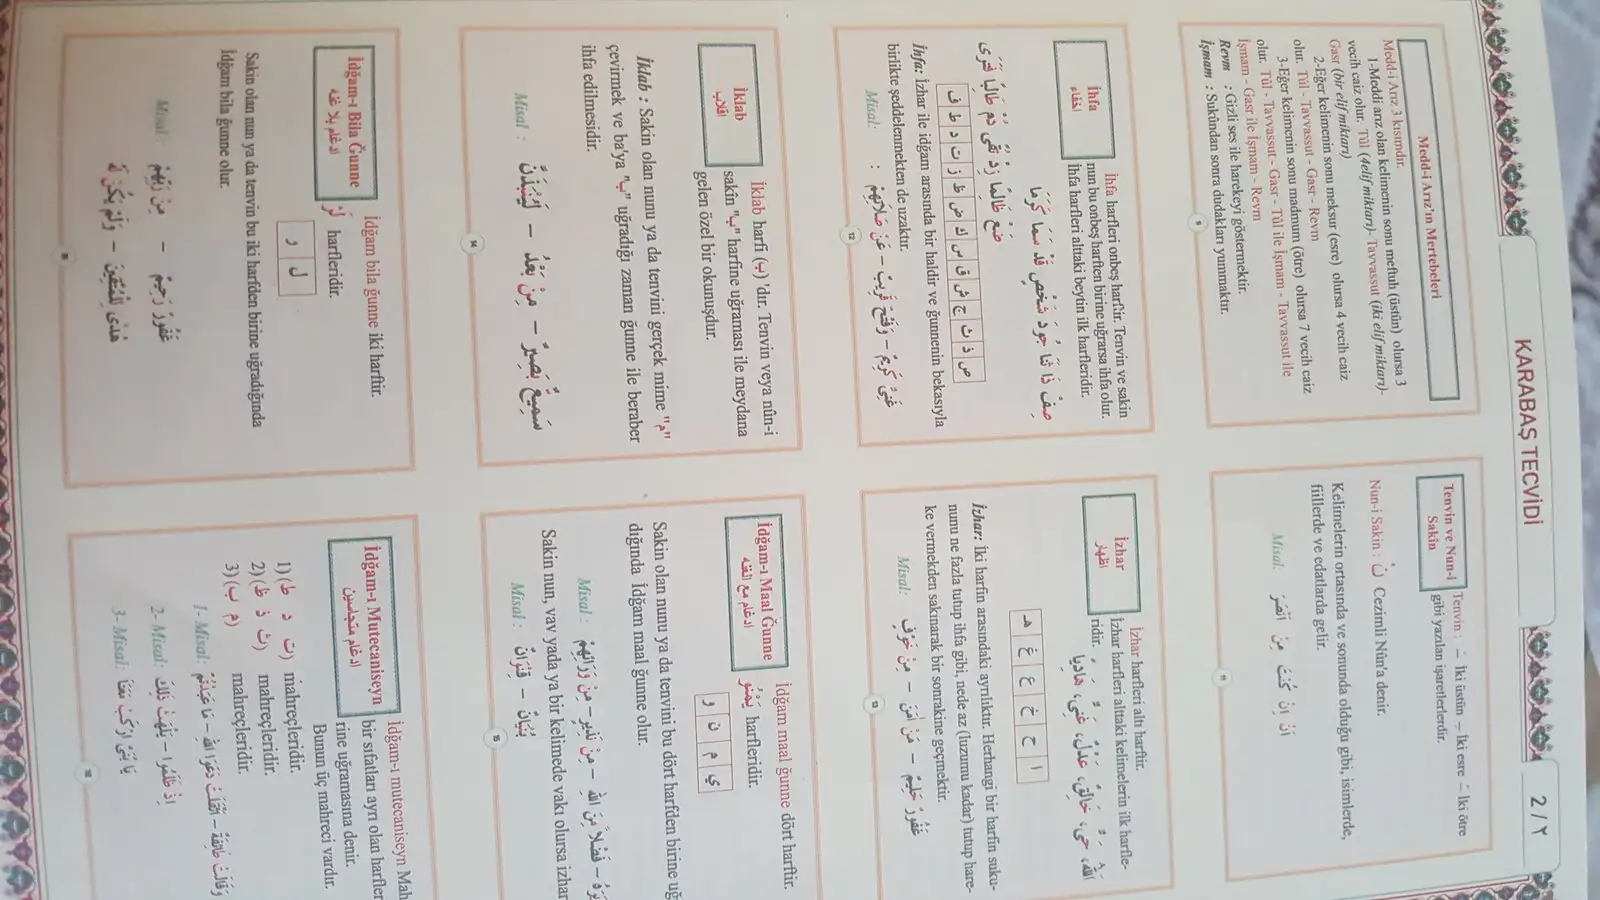 KARABAŞ TECVİDİ
2 / ٢
Medd-i Arız'ın Mertebeleri
Medd-i Arız 3 kısımdır.
1-Meddi arız olan kelimenin sonu meftuh (üstün) olursa 3
vecih caiz olur. Tûl (4elif miktarı)- Tavvassut (iki elif miktarı)-
Gasr (bir elif miktarı)
2-Eğer kelimenin sonu meksur (esre) olursa 4 vecih caiz
olur. Tûl - Tavvassut - Gasr - Revm
3-Eğer kelimenin sonu madmum (ötre) olursa 7 vecih caiz
olur. Tûl - Tavvassut - Gasr - Tûl ile İşmam - Tavvassut ile
İşmam - Gasr ile İşmam - Revm
Revm : Gizli ses ile harekeyi göstermektir.
İşmam : Sukûndan sonra dudakları yummaktır.
9
Tenvin ve Nun-i
Sakin
Tenvin : ـً İki üstün ـٍ İki esre ـٌ İki ötre
gibi yazılan işaretlerdir.
Nun-i Sakin : نْ Cezimli Nûn'a denir.
Kelimelerin ortasında ve sonunda olduğu gibi, isimlerde,
fiillerde ve edatlarda gelir.
Misal: اَنْ اِنْ كُنْتَ مِنْ اَنْصَرَ
11
İhfa
اخفاء
İhfa harfleri onbeş harftir. Tenvin ve sakin
nun bu onbeş harften birine uğrarsa ihfa olur.
İhfa harfleri alttaki beytin ilk harfleridir.
صِفْ ذَا ثَنَا جُودَ شَخْصٍ قَدْ سَمَا كَرَمًا
ضَعْ ظَالِمًا زِدْ تُقًى دُمْ طَالِبًا فَتَرٰى
ص ذ ث ج ش ق س ك ض ظ ز ت د ط ف
İhfa: İzhar ile idğam arasında bir haldir ve ğunnenin bekasıyla
birlikte şeddelenmekten de uzaktır.
Misal: غَنِىٌّ كَرِيمٌ - وَفَتْحٌ قَرِيبٌ - عَنْ صَلَاتِهِمْ :
12
İzhar
اظهار
İzhar harfleri altı harftir.
İzhar harfleri alttaki kelimelerin ilk harfle-
ridir. اَللهُ، حَىٌّ، خَالِقٌ، عَدْلٌ، غَنِىٌّ، هَادِيًا
ا ح خ ع غ هـ
İzhar: İki harfin arasındaki ayrılıktır. Herhangi bir harfin suku-
nunu ne fazla tutup ihfa gibi, nede az (luzumu kadar) tutup hare-
ke vermekden sakınarak bir sonrakine geçmektir.
Misal: غَفُورٌ حَلِيمٌ - مَنْ اٰمَنَ - مِنْ خَوْفٍ
13
İklab
اقلاب
İklab harfi (ب) 'dır. Tenvin veya nûn-i
sakîn "ب" harfine uğraması ile meydana
gelen özel bir okunuşdur.
İklab : Sakin olan nunu ya da tenvini gerçek mime "م"
çevirmek ve ba'ya "ب" uğradığı zaman ğunne ile beraber
ihfa edilmesidir.
Misal : سَمِيعٌ بَصِيرٌ - مِنْ بَعْدِ - لَيُنْبَذَنَّ
14
İdğam-ı Maal Ğunne
ادغام مع الغنه
İdğam maal ğunne dört harftir.
يَمْنُو harfleridir.
ي م ن و
Sakin olan nunu ya da tenvini bu dört harfden birine uğ
dığında İdğam maal ğunne olur.
Misal : يَرَهُ - فَضْلاً مِنَ اللهِ - مِنْ نَذِيرٍ - مِنْ وَرَائِهِمْ
Sakin nun, vav yada ya bir kelimede vakı olursa izhar
Misal : بُنْيَانٌ - قِنْوَانٌ
15
İdğam-ı Bila Ğunne
ادغام بلا غنه
İdğam bila ğunne iki harftir.
لَرْ harfleridir.
ل ر
Sakin olan nun ya da tenvin bu iki harfden birine uğradığında
İdğam bila ğunne olur.
Misal : غَفُورٌ رَحِيمٌ - مِنْ رَبِّهِمْ
هُدًى لِلْمُتَّقِينَ - وَلَمْ يَكُنْ لَهُ
İdğam-ı Mutecaniseyn
ادغام متجانسين
İdğam-ı mutecaniseyn Mah
bir sıfatları ayrı olan harfler
rine uğramasına denir.
Bunun üç mahreci vardır.
1) (ت د ط) mahreçleridir.
2) (ث ذ ظ) mahreçleridir.
3) (م ب) mahreçleridir.
1- Misal: وَقَالَتْ طَائِفَةٌ - اَثْقَلَتْ دَعَوَا اللهَ - مَا عَبَدْتُمْ
2- Misal: اِذْ ظَلَمُوا - يَلْهَثْ ذٰلِكَ
3- Misal: يَا بُنَىَّ ارْكَبْ مَعَنَا